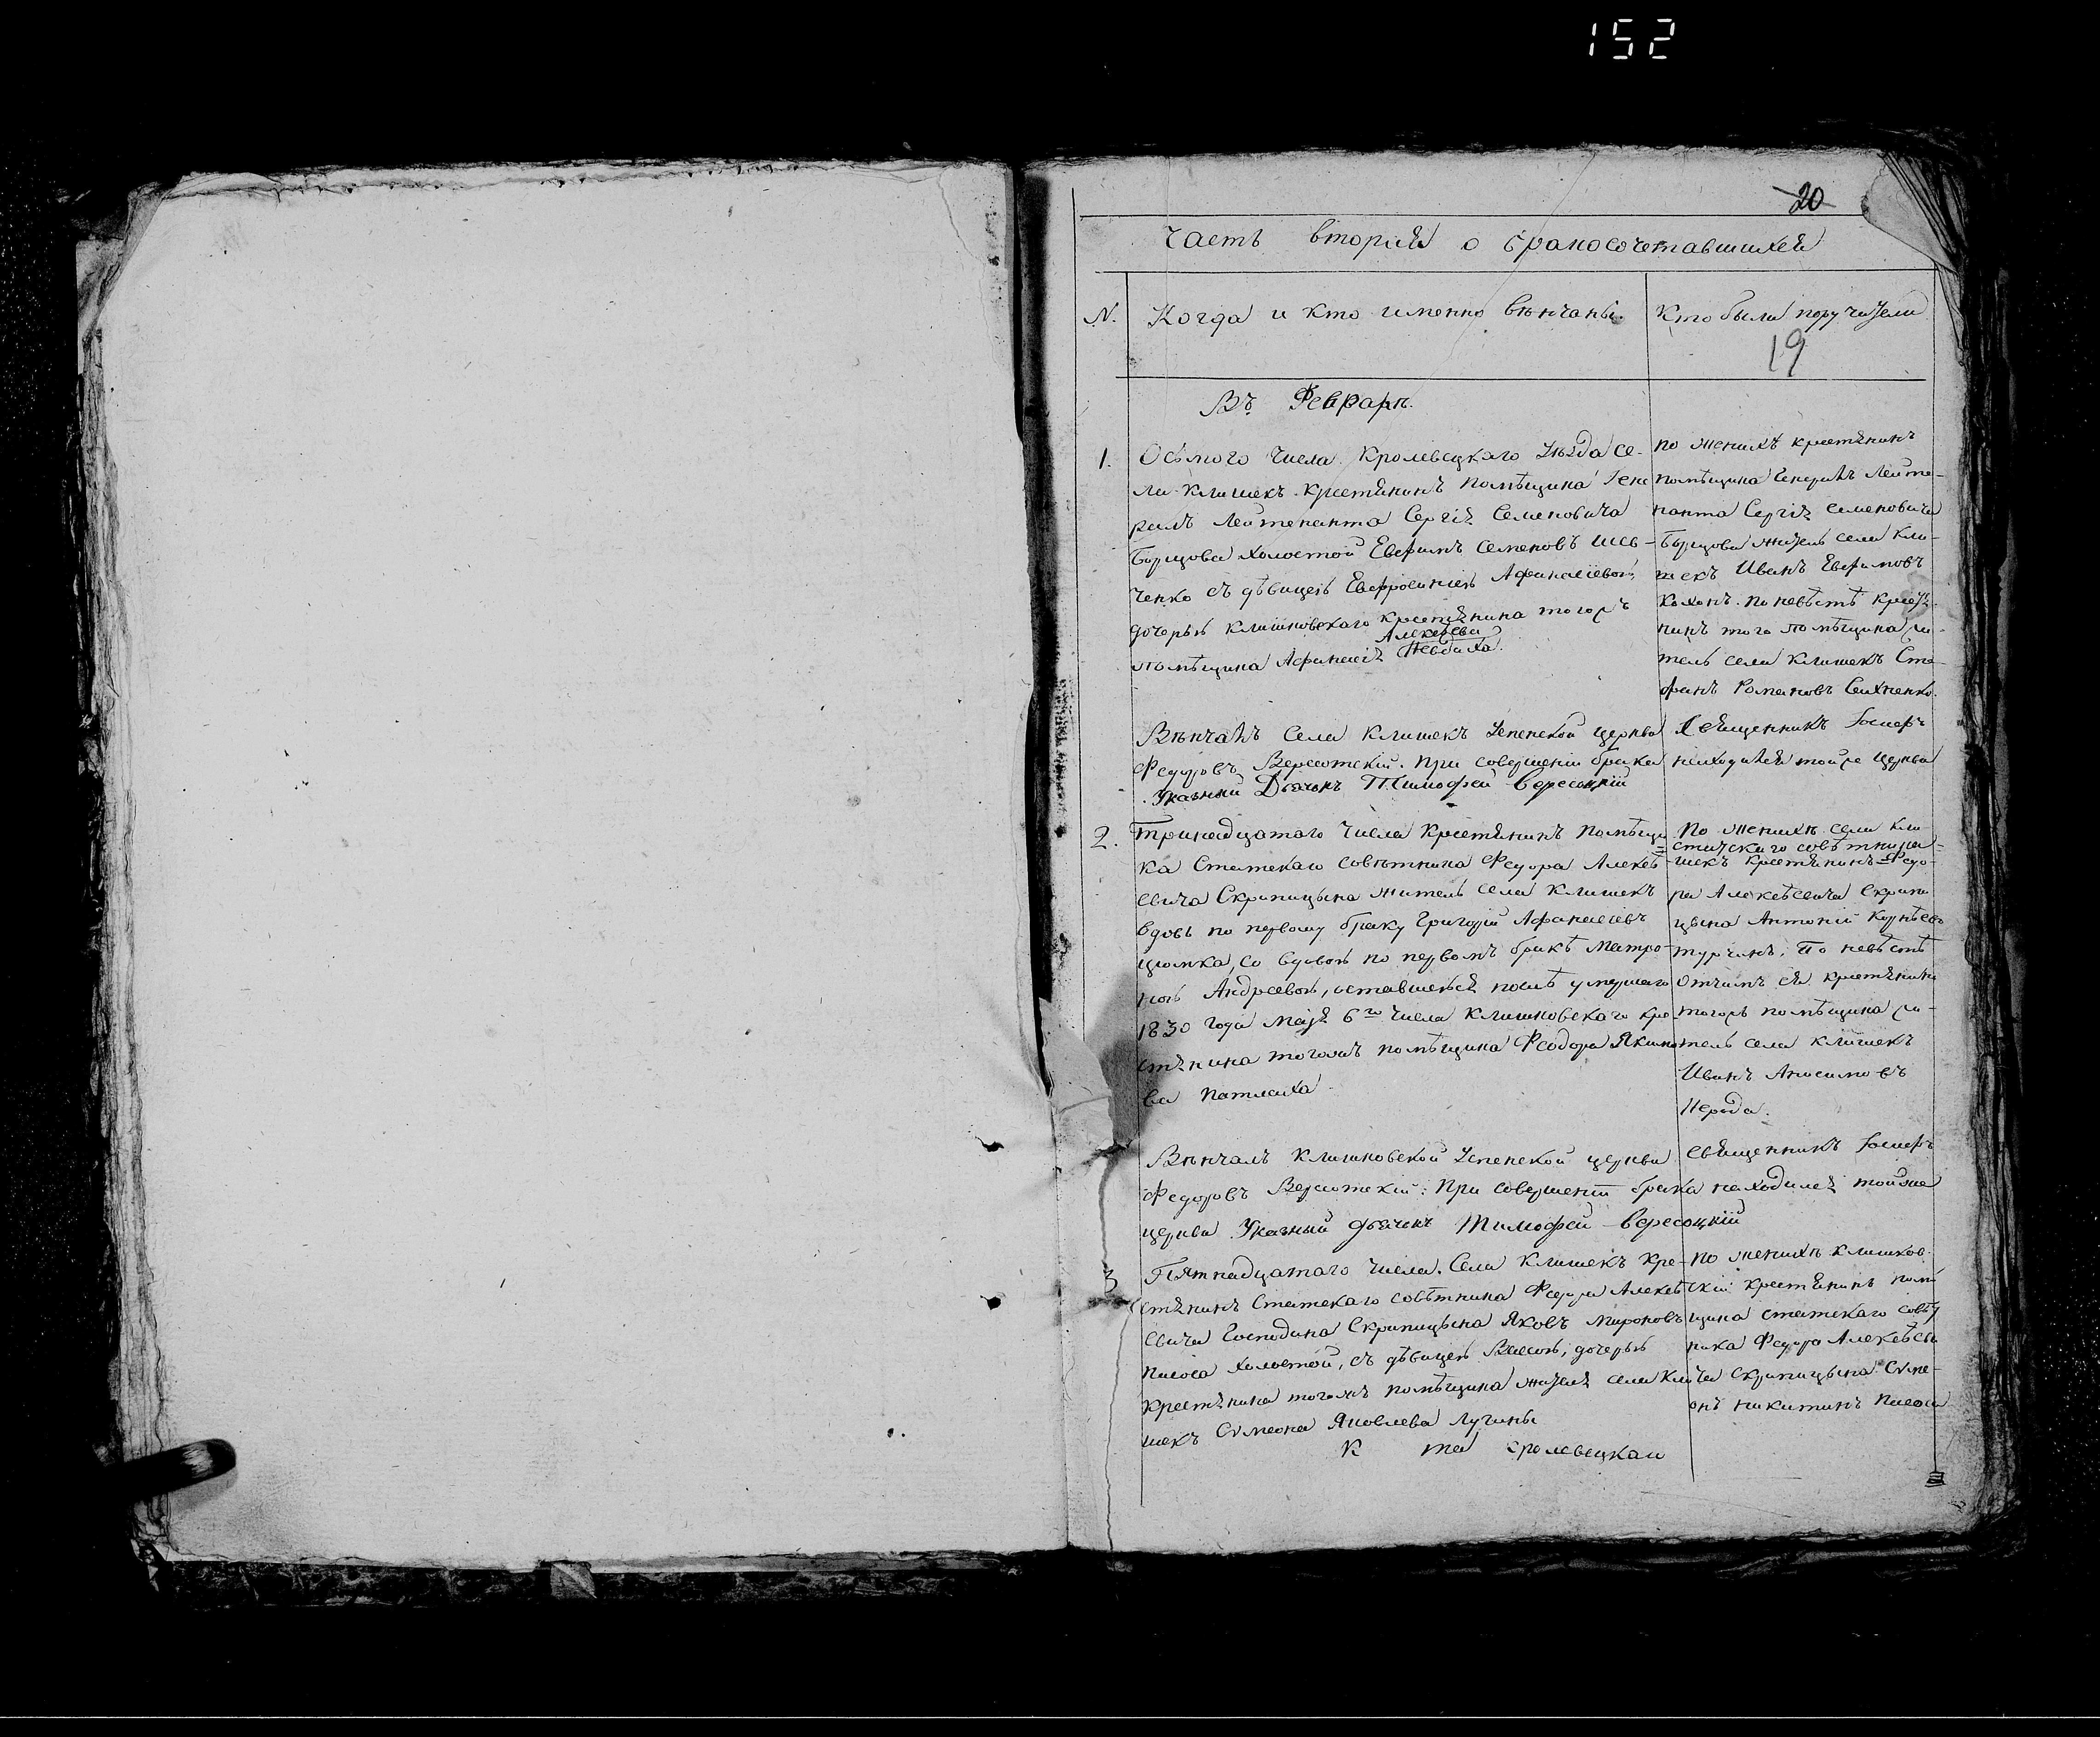 152
20
Часть вторая о бракосочетавшихся
N. Когда и кто именно вѣнчаны. Кто были поручители
19
Въ Февралѣ.
1. Осьмого числа Кролевецкаго уѣзда се-
ла Клишекъ крестянинъ помѣщика Гене
ралъ Лейтенанта Сергія Семеновича
Борщова холостой Евфимъ Семеновъ Шев-
ченко съ дѣвицею Евфросиніею Афанасіевою,
дочерью Клишковскаго крестянина тогожъ
Алексѣева
помѣщика Афанасія
по женихѣ крестянинъ
помѣщика Генералъ Лейте-
нанта Сергія Семеновича
Борщова житель села Кли-
шекъ Иванъ Евфимовъ
по невѣстѣ крестя-
нинъ того помѣщика жи-
тель села Клишекъ Сте-
фанъ Романовъ
Вѣнчалъ Села Клишекъ Успенской церкви Священникъ Іосифъ
Федоровъ Вересотскій. При совершеніи брака находился тойже церкви
Указный Дьячокъ Тимофей Вересоцкій
2. Тринадцатаго числа крестянинъ помѣщи
ка Статскаго совѣтника Федора Алексѣ
евича Скрипицына житель села Клишекъ
вдовъ по первому браку Григорій Афанасіевъ
со вдовою по первомъ бракѣ Матро-
ною Андреевою, оставшеюся послѣ умершаго
1830 года Маія 6го числа Клишковскаго кре-
стянина тогожъ помѣщика Феодора Якимо
ва Патлаха
По женихѣ села Кли
статскаго совѣтника
шекъ крестянинъ Федо-
ра Алексѣевича Скрипи
цына Антоній Корнѣевъ
Турчинъ. По невѣстѣ
Отчимъ ея крестянинъ
тогожъ помѣщика жи-
тель села Клишекъ
Иванъ Анисимовъ
Нерода.
Вѣнчалъ Клишковской Успенской церкви Священникъ Іосифъ
Федоровъ Вересотскій: При совершеніи брака находился тойже
церкви Указный дьячокъ Тимофей Вересоцкій
3 Пятнадцатаго числа. Села Клишекъ кре-
стянинъ Статскаго совѣтника Федора Алексѣ
евича Господина Скрипицына Яковъ Мироновъ
холостой, съ дѣвицею дочерью
крестянина тогожъ помѣщика жителя села Кли
шекъ Сѵмеона Яковлева Лучины
по женихѣ Клишков-
скій крестянинъ помѣ
щика статскаго совѣт
ника Федора Алексѣеви
ча Скрипицына Сѵме-
онъ Никитинъ
К та кролевецкаи